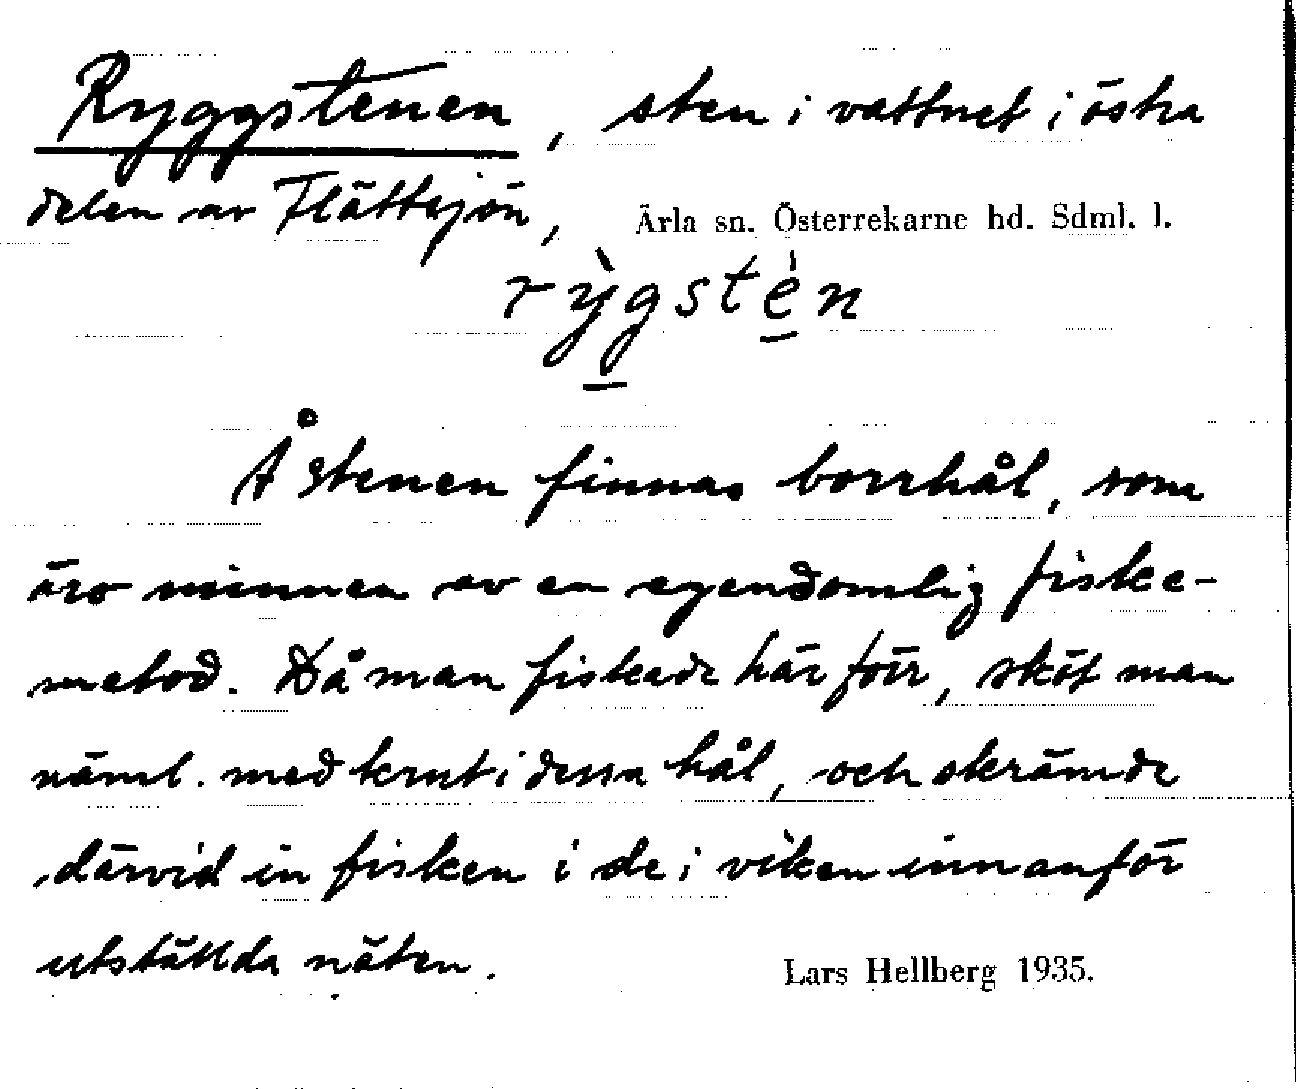 Ryggstenen, sten i vattnet i östra
delen av Flättsjön, Ärla sn. Österrekarne hd. Sdml. l.
rỳgstén
Å stenen finnas borrhål, som
äro minnen av en egendomlig fiske-
metod. Då man fiskade här förr, sköt man
näml. med krut i dessa hål, och skrämde
därvid in fisken i de i viken innanför
utställda näten. Lars Hellberg 1935.